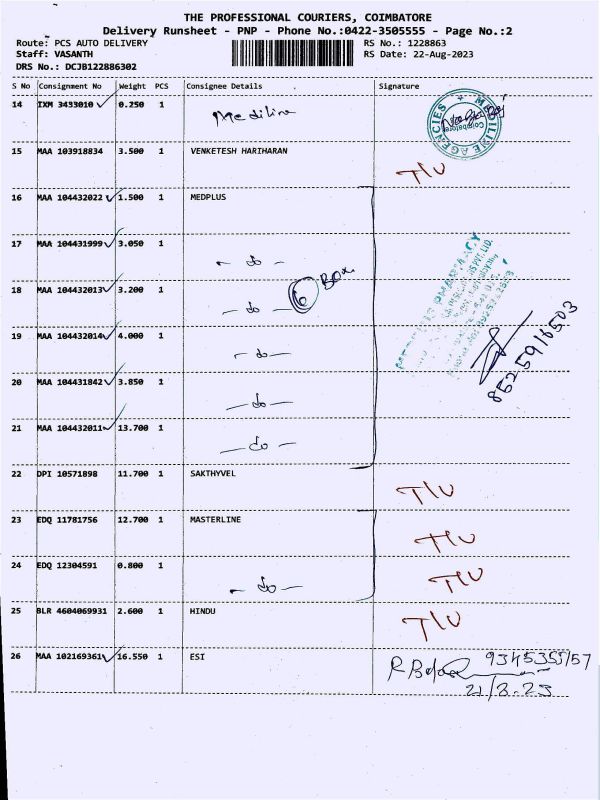 THE PROFESSIONAL COURIERS, COIMBATORE
Delivery Runsheet - PNP - Phone No.:0422-3505555 - Page No.:2
Route: PCS AUTO DELIVERY RS No.: 1228863
Staff: VASANTH RS Date: 22-Aug-2023
DRS No.: DCJB122886302
S No Consignment No Weight PCS Consignee Details Signature
14 IXM 3433010 0.250 1 Mediline
MEDILINE AGENCIES
Coimbatore
15 MAA 103918834 3.500 1 VENKETESH HARIHARAN T/U
16 MAA 104432022 1.500 1 MEDPLUS
17 MAA 104431999 3.050 1 - do -
18 MAA 104432013 3.200 1 - do - 6 Box
19 MAA 104432014 4.000 1 - do -
8525916503
20 MAA 104431842 3.850 1 - do -
21 MAA 104432011 13.700 1 - do -
22 DPI 10571898 11.700 1 SAKTHYVEL T/U
23 EDQ 11781756 12.700 1 MASTERLINE T/U
24 EDQ 12304591 0.800 1 - do - T/U
25 BLR 4604069931 2.600 1 HINDU T/U
26 MAA 102169361 16.550 1 ESI 9345355157